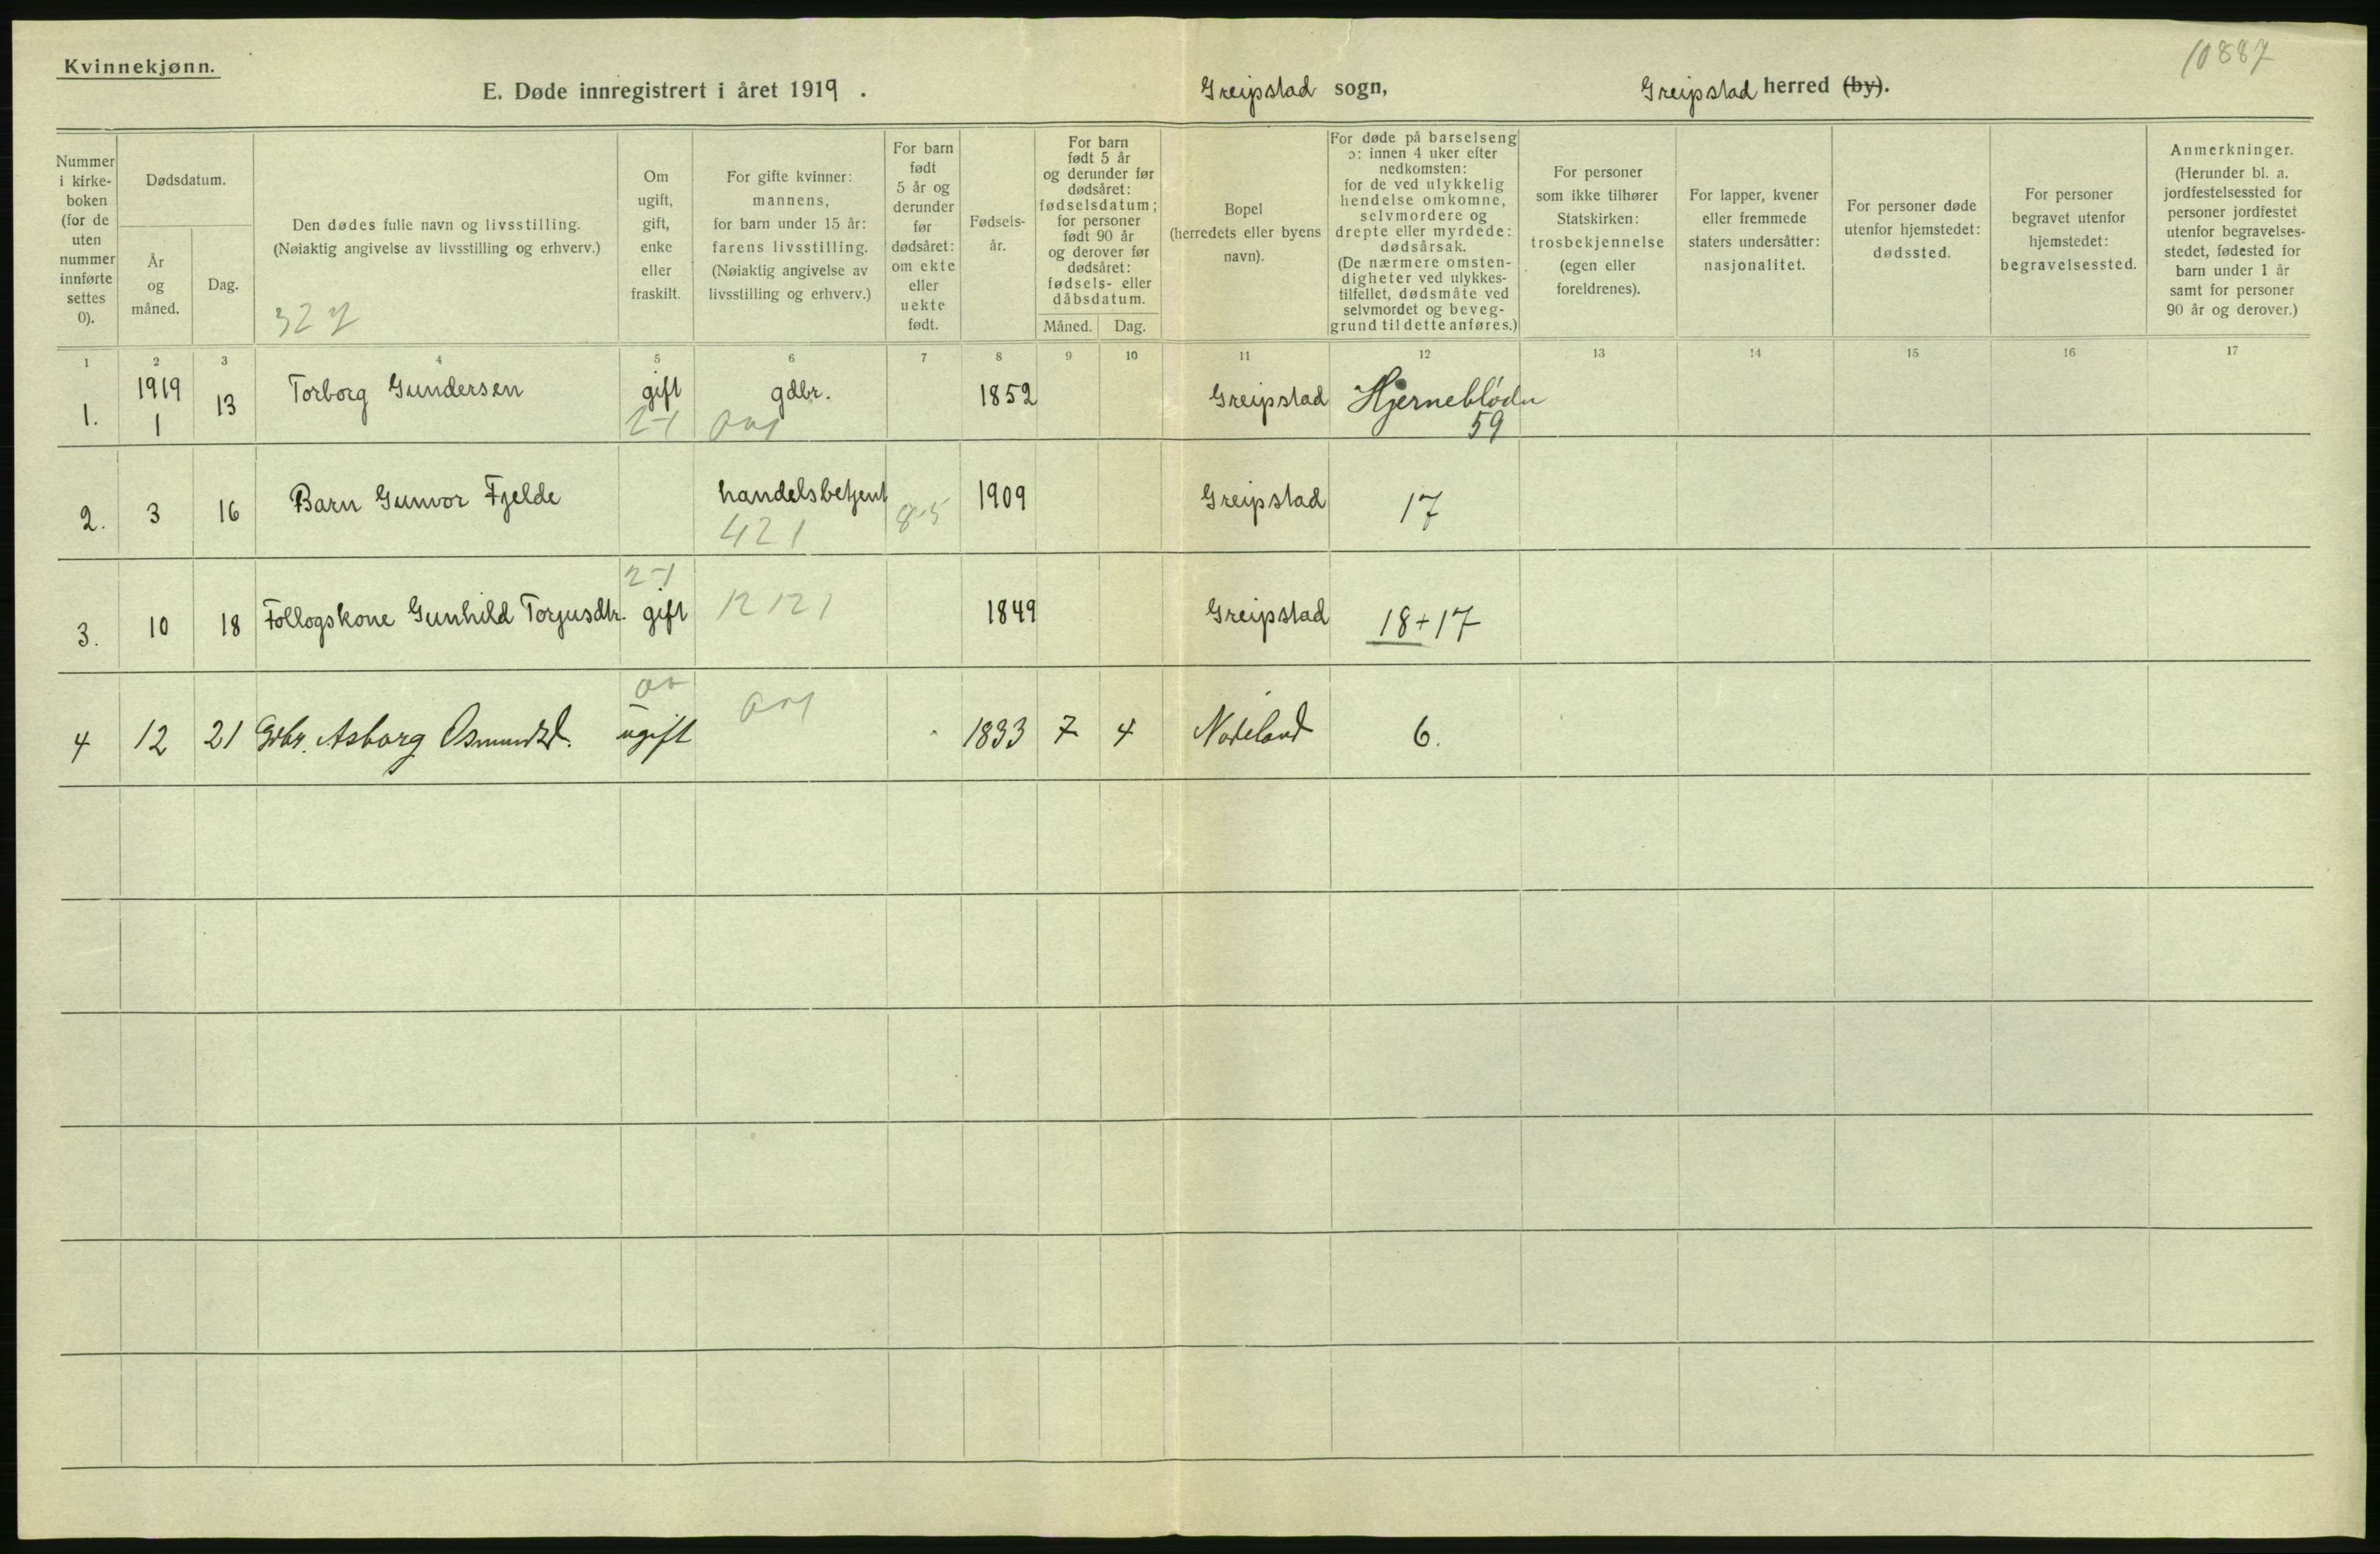 10887
Kvinnekjønn.
E. Døde innregistrert i året 1919. Greipstad sogn, Greipstad herred (by).
Nummer i kirke- boken (for de uten nummer innførte settes 0).
Dødsdatum.
År og måned.
Dag.
Den dødes fulle navn og livsstilling.
(Nøiaktig angivelse av livsstilling og erhverv.)
327
Om ugift, gift, enke eller fraskilt.
For gifte kvinner: mannens, for barn under 15 år: farens livsstilling. (Nøiaktig angivelse av livsstilling og erhverv.)
For barn født 5 år og derunder før dødsåret: om ekte eller uekte født.
Fødsels- år.
For barn født 5 år og derunder før dødsåret: fødselsdatum; for personer født 90 år og derover før dødsåret: fødsels- eller dåbsdatum.
Måned. Dag.
Bopel (herredets eller byens navn).
For døde på barselseng ɔ: innen 4 uker efter nedkomsten: for de ved ulykkelig hendelse omkomne, selvmordere og drepte eller myrdede: dødsårsak. (De nærmere omsten- digheter ved ulykkes- tilfellet, dødsmåte ved selvmordet og beveg- grund til dette anføres.)
For personer som ikke tilhører Statskirken: trosbekjennelse (egen eller foreldrenes).
For lapper, kvener eller fremmede staters undersåtter: nasjonalitet.
For personer døde utenfor hjemstedet: dødssted.
For personer begravet utenfor hjemstedet: begravelsessted.
Anmerkninger. (Herunder bl. a. jordfestelsessted for personer jordfestet utenfor begravelses- stedet, fødested for barn under 1 år samt for personer 90 år og derover.)
1 2 3 4 5 6 7 8 9 10 11 12 13 14 15 16 17
1. 1919 1 13 Torborg Gundersen gift gdbr. 1852 Greipstad Hjerneblødn
59
2. 3 16 Barn Gunvor Fjelde handelsbetjent 1909 Greipstad 17
421
3. 10 18 Føllogskone Gunhild Torjusdtr. gift 12121 1849 Greipstad 18+17
4 12 21 Gdbr. Asborg Osmundsd. ugift 1833 7 4 Nodeland 6.